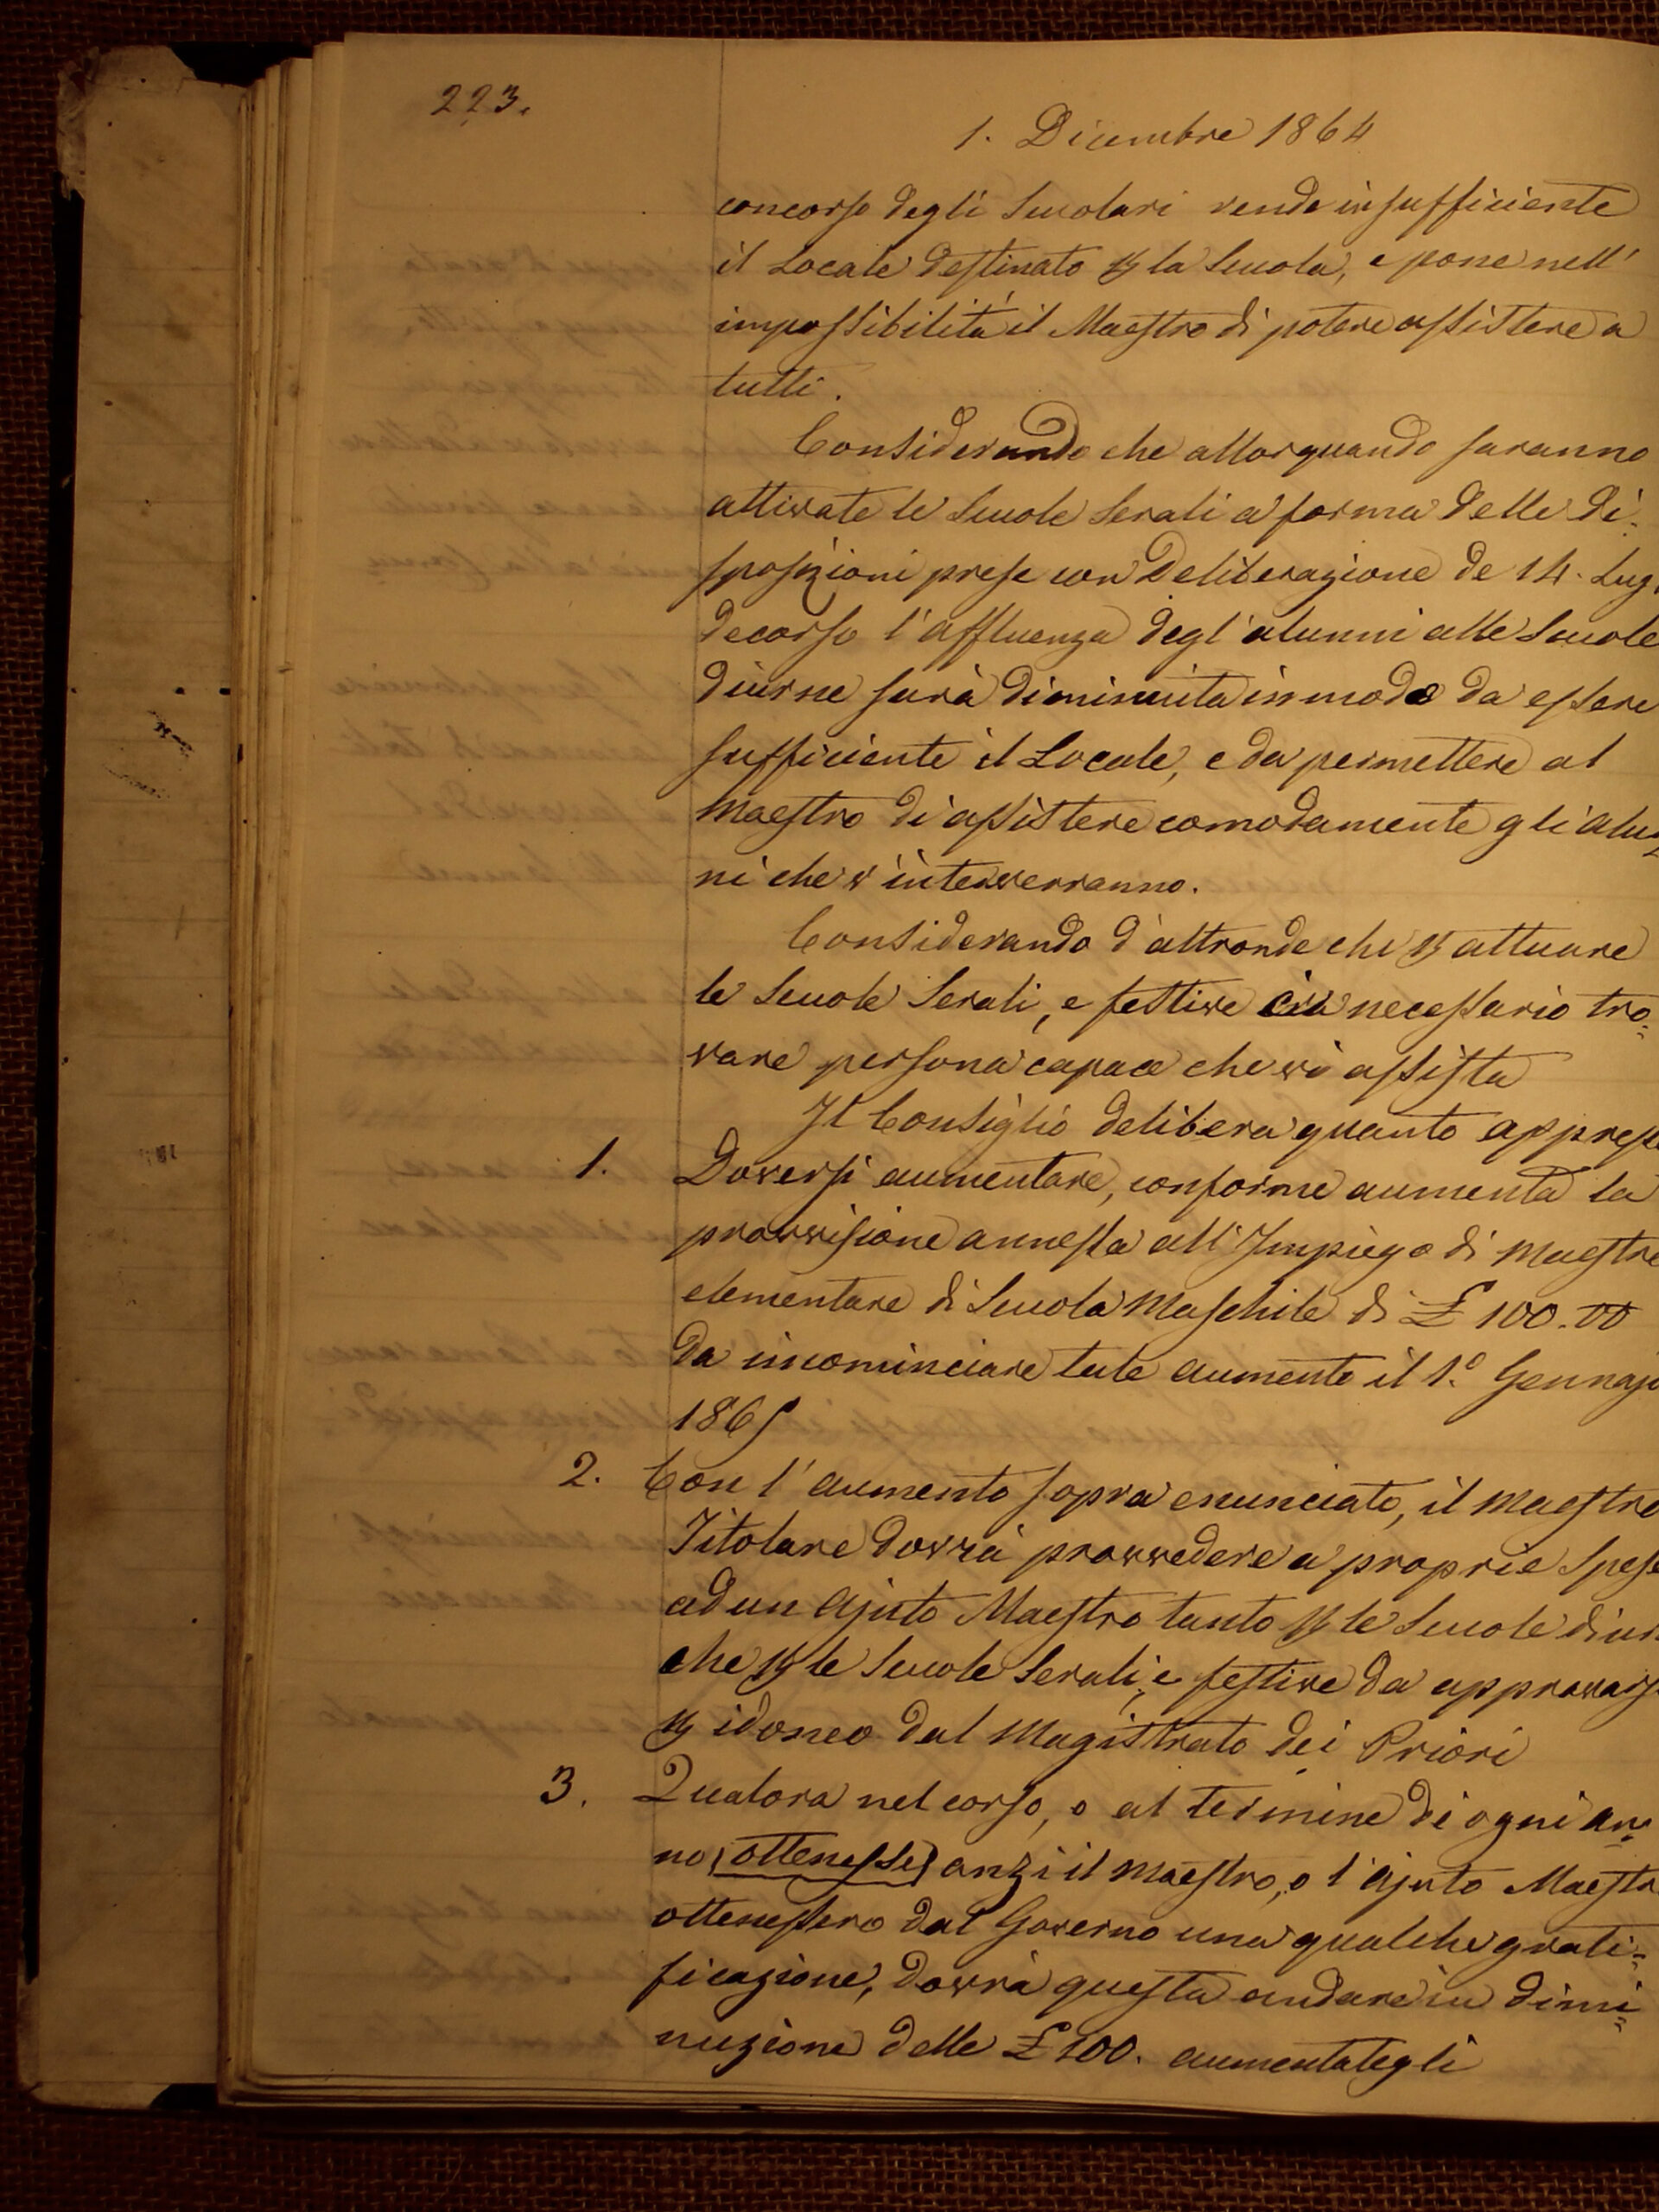 223.
1. Dicembre 1864
concorso degli Scuolari rende insufficiente
il Locale destinato p la Scuola, e pone nell'
impossibilità il Maestro di potere assistere a
tutti.
Considerando che allorquando saranno
attivate le Scuole Serali a forma delle di=
sposizioni prese con Deliberazione de 14. Lug.
decorso l'affluenza degl'alunni alle Scuole
diurne sarà diminuita in modo da essere
sufficiente il Locale, e da permettere al
Maestro di assistere comodamente gli alun
ni che v'interverranno.
Considerando d'altronde che p attuare
le Scuole Serali, e festive era necessario tro=
vare persona capace che vi assista
Il Consiglio delibera quanto appress
1. Doversi aumentare, conforme aumenta la
provvisione annessa all'Impiego di Maestro
elementare di Scuola Maschile di £ 100.00
da incominciare tale aumento il 1.º Gennajo
1865
2. Con l'aumento sopra enunciato, il Maestro
Titolare dovrà provvedere a proprie Spese
ad un Ajuto Maestro tanto p le Scuole diur
che p le Scuole Serali, e festive da approvars
p idoneo dal Magistrato dei Priori
3. Qualora nel corso, o al termine di ogni an=
no (ottenesse) anzi il Maestro, o l'Ajuto Maestr
ottenessero dal Governo una qualche grati=
ficazione, dovrà questa andare in dimi=
nuzione delle £ 100. aumentategli